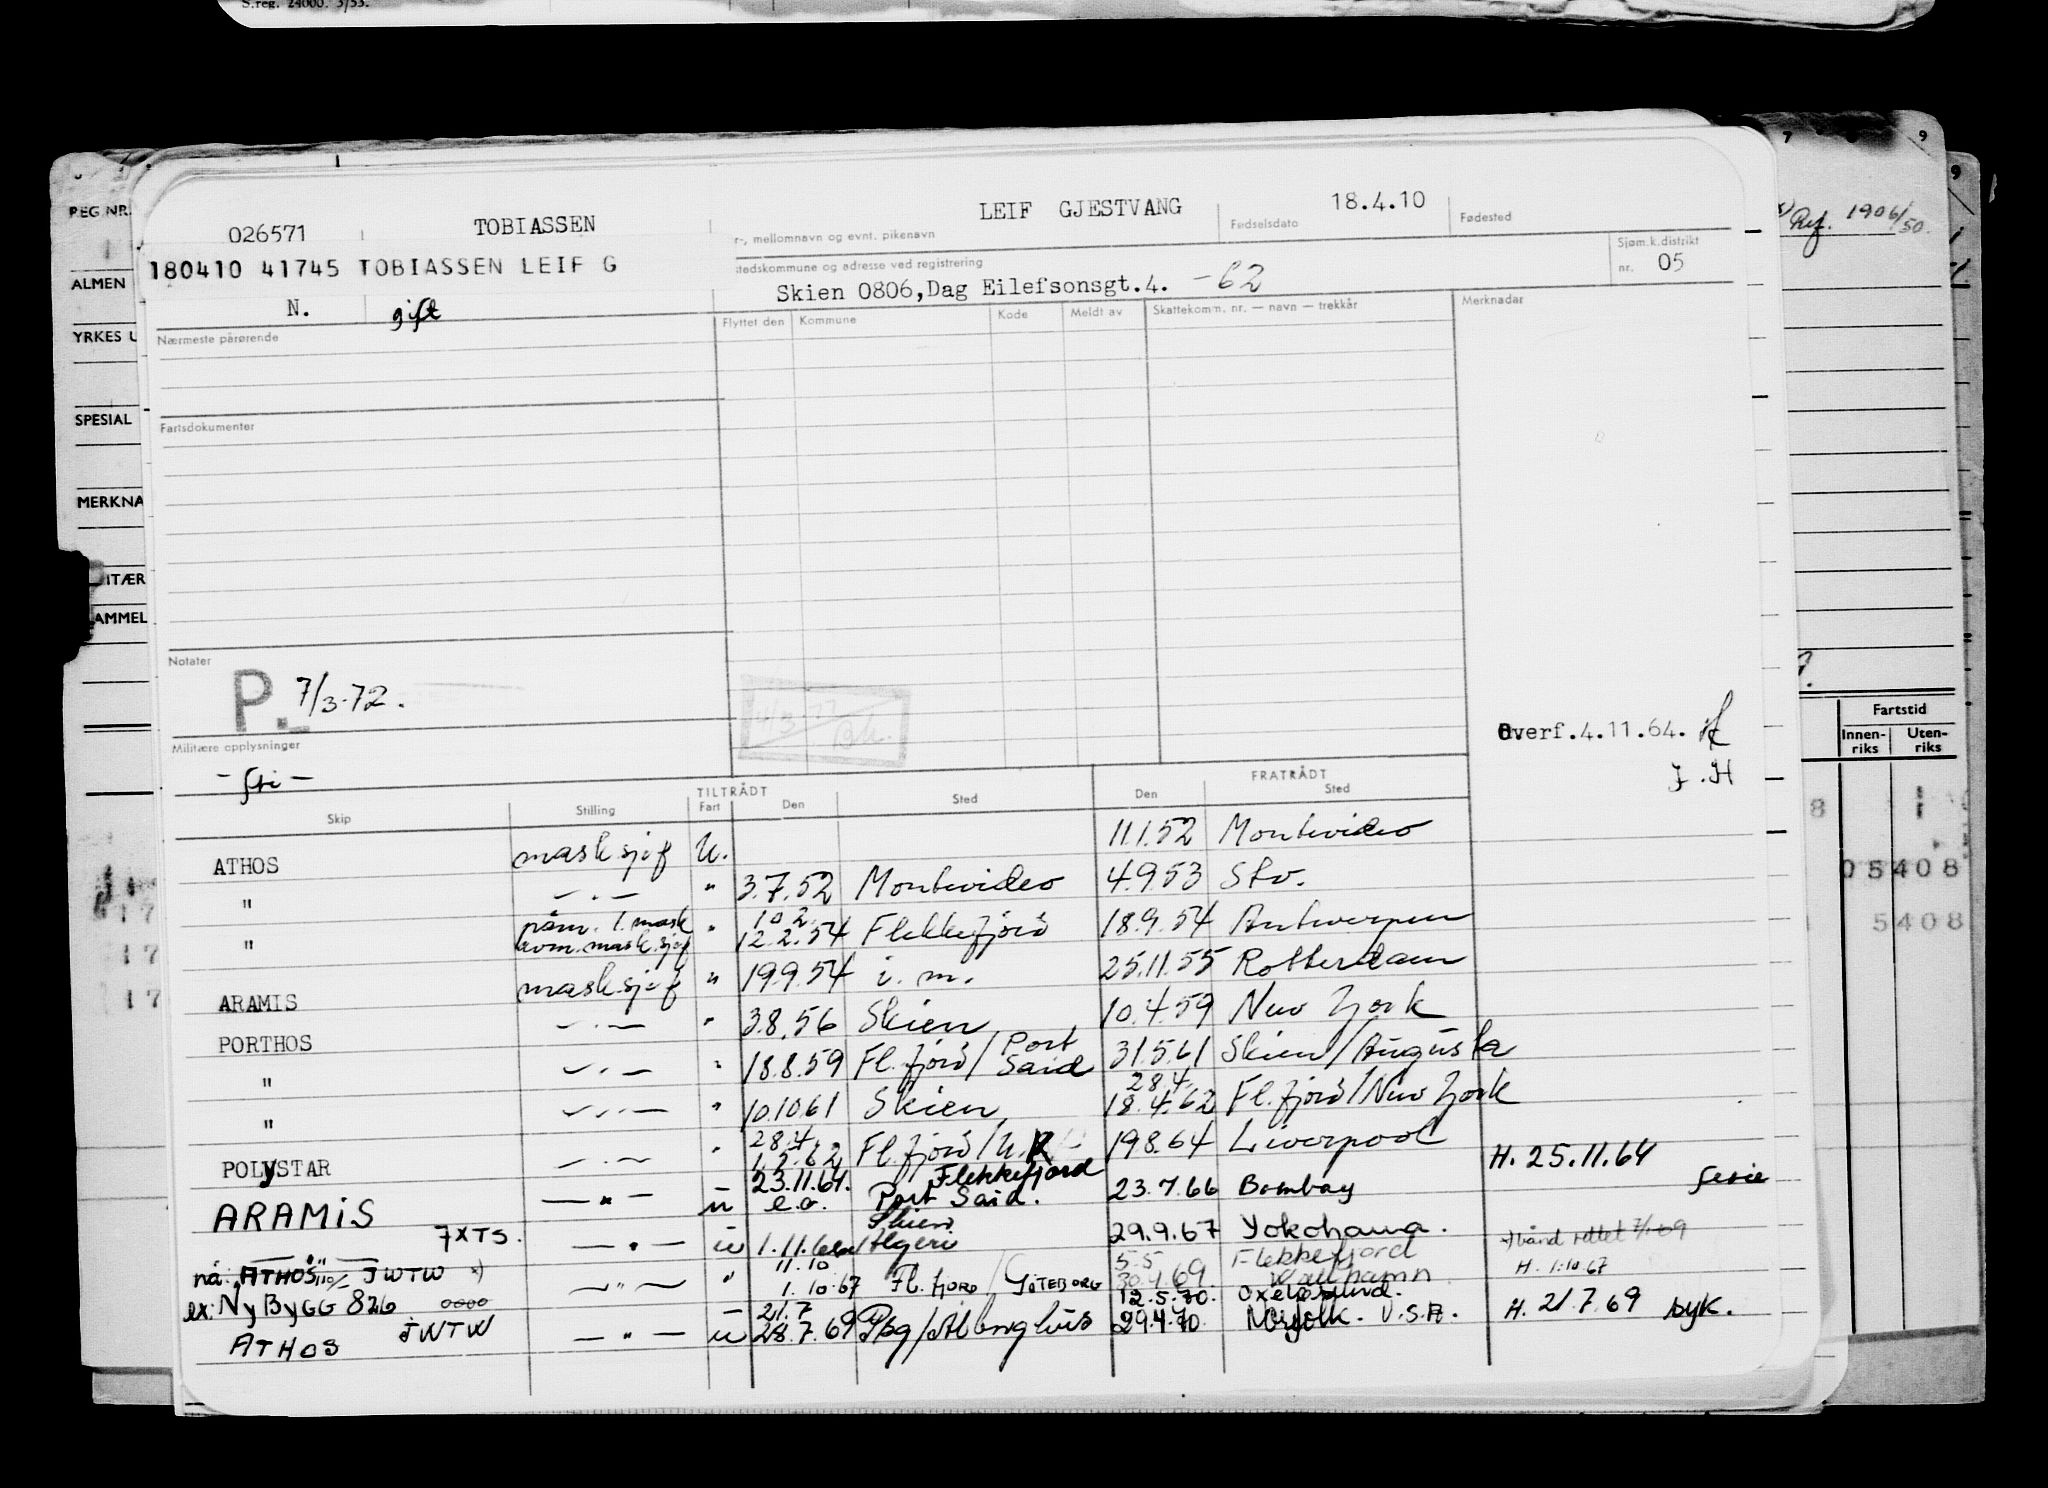 S.reg. 24000. 3/53.
7 9
REG NR.
ALMEN
YRKES U
SPESIAL
MERKNA
ITÆR
AMMEL
Ref. 1906/50.
026571 TOBIASSEN LEIF GJESTVANG 18.4.10
r-, mellomnavn og evnt. pikenavn Fødselsdato Fødested
180410 41745 TOBIASSEN LEIF G
stedskommune og adresse ved registrering Sjøm.k.distrikt
nr. 05
Skien 0806,Dag Eilefsonsgt.4. -62
N. gift
Nærmeste pårørende Flyttet den Kommune Kode Meldt av Skattekom.n. nr. — navn — trekkår Merknadar
Fartsdokumenter
Notater
P. 7/3-72.
Militære opplysninger
- fri -
Overf.4.11.64.
J.H
Fartstid
Innen-riks Uten-riks
05408
5408
TILTRÅDT FRATRÅDT
Skip Stilling Fart Den Sted Den Sted
ATHOS mask.sjef U. 11.1.52 Montevideo
" — . — " 3.7.52 Montevideo 4.9.53 Stv.
" 1. mask " 10.2. 12.2.54 Flekkefjord 18.9.54 Antwerpen
mask.sjef
ARAMIS mask.sjef " 19.9.54 i. m. 25.11.55 Rotterdam
PORTHOS — . — " 3.8.56 Skien 10.4.59 New York
" — . — " 18.8.59 Fl.fjord/Port Said 31.5.61 Skien/Augusta
" — . — " 10.10.61 Skien 28.4. 18.4.62 Fl.fjord/New York
POLYSTAR — . — " 28.4 1.5.62 Fl.fjord/ 19.8.64 Liverpool
H. 25.11.64
ARAMIS — " — u 23.11.64. e.o. Flekkefjord Port Said. 23.7.66 Bombay ferie
7XTS. — " — u 1.11.66 Skien/Algeri 29.9.67 Yokohama.
nå: ATHOS JWTW x)
ex: NyBygg 826 0000 — " — " 11.10 1.10.67 Fl.fjord/Göteborg 5.5 30.4.69 Flekkefjord
H. 1.10.67
12.5.70. Oxeløsund.
ATHOS JWTW — " — u 21.7 28.7.69 29.4.70. Norfolk. U.S.A. H. 21.7.69 syk.